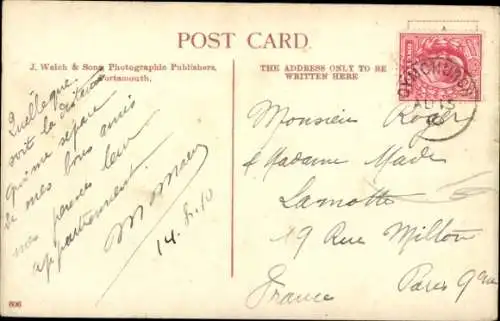 POST CARD
J. Welch & Sons, Photographic Publishers,
Portsmouth.
THE ADDRESS ONLY TO BE
WRITTEN HERE
Quelle que
soit la distance
qui me sépare
de mes bons amis
mes pensées leur
appartiennent.
14.8.10
Monsieur Roger
& Madame Made
Lamotte
19 Rue Milton
Paris 9me
France
606